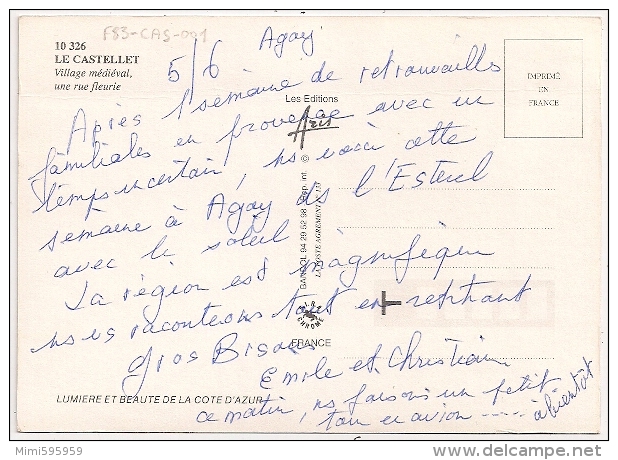 F83-CAS-001
10 326
LE CASTELLET
Village médiéval,
une rue fleurie
5/6 Agay
IMPRIMÉ
EN
FRANCE
Les Editions
Aris
Après 1 semaine de retrouvailles
familiales en provence avec un
temps incertain, ns voici cette
semaine à Agay ds l'Esterel
avec le soleil
La région est magnifique
ns vs raconterons tout en rentrant
gros Bisous
Emile et Christiane
ce matin, ns faisons un petit
tour en avion ---- à bientôt
BANDOL 94 29 52 98 Rep. int. ©
LA POSTE AGREMENT N° 110
I.R.
CHROME
FRANCE
LUMIERE ET BEAUTE DE LA COTE D'AZUR
Mimi595959
www.delcampe.net